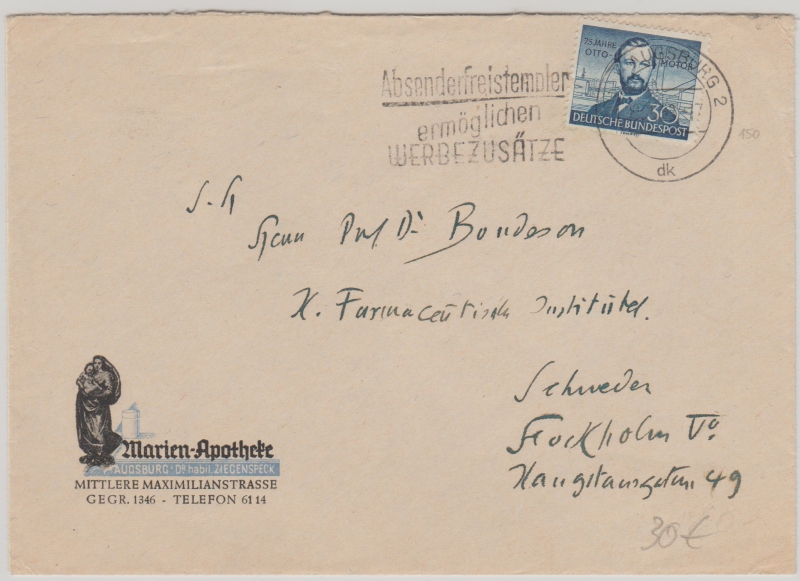 Absenderfreistempler
ermöglichen
WERBEZUSÄTZE
75 JAHRE
OTTO-MOTOR
30
DEUTSCHE BUNDESPOST
AUGSBURG 2
dk
150
S. H
Herrn Prof Dr Bondeson
K. Farmaceutiska Institutet.
Schweden
Stockholm Va
49
Marien-Apotheke
AUGSBURG · DR habil. ZIEGENSPECK
MITTLERE MAXIMILIANSTRASSE
GEGR. 1346 - TELEFON 61 14
30 €